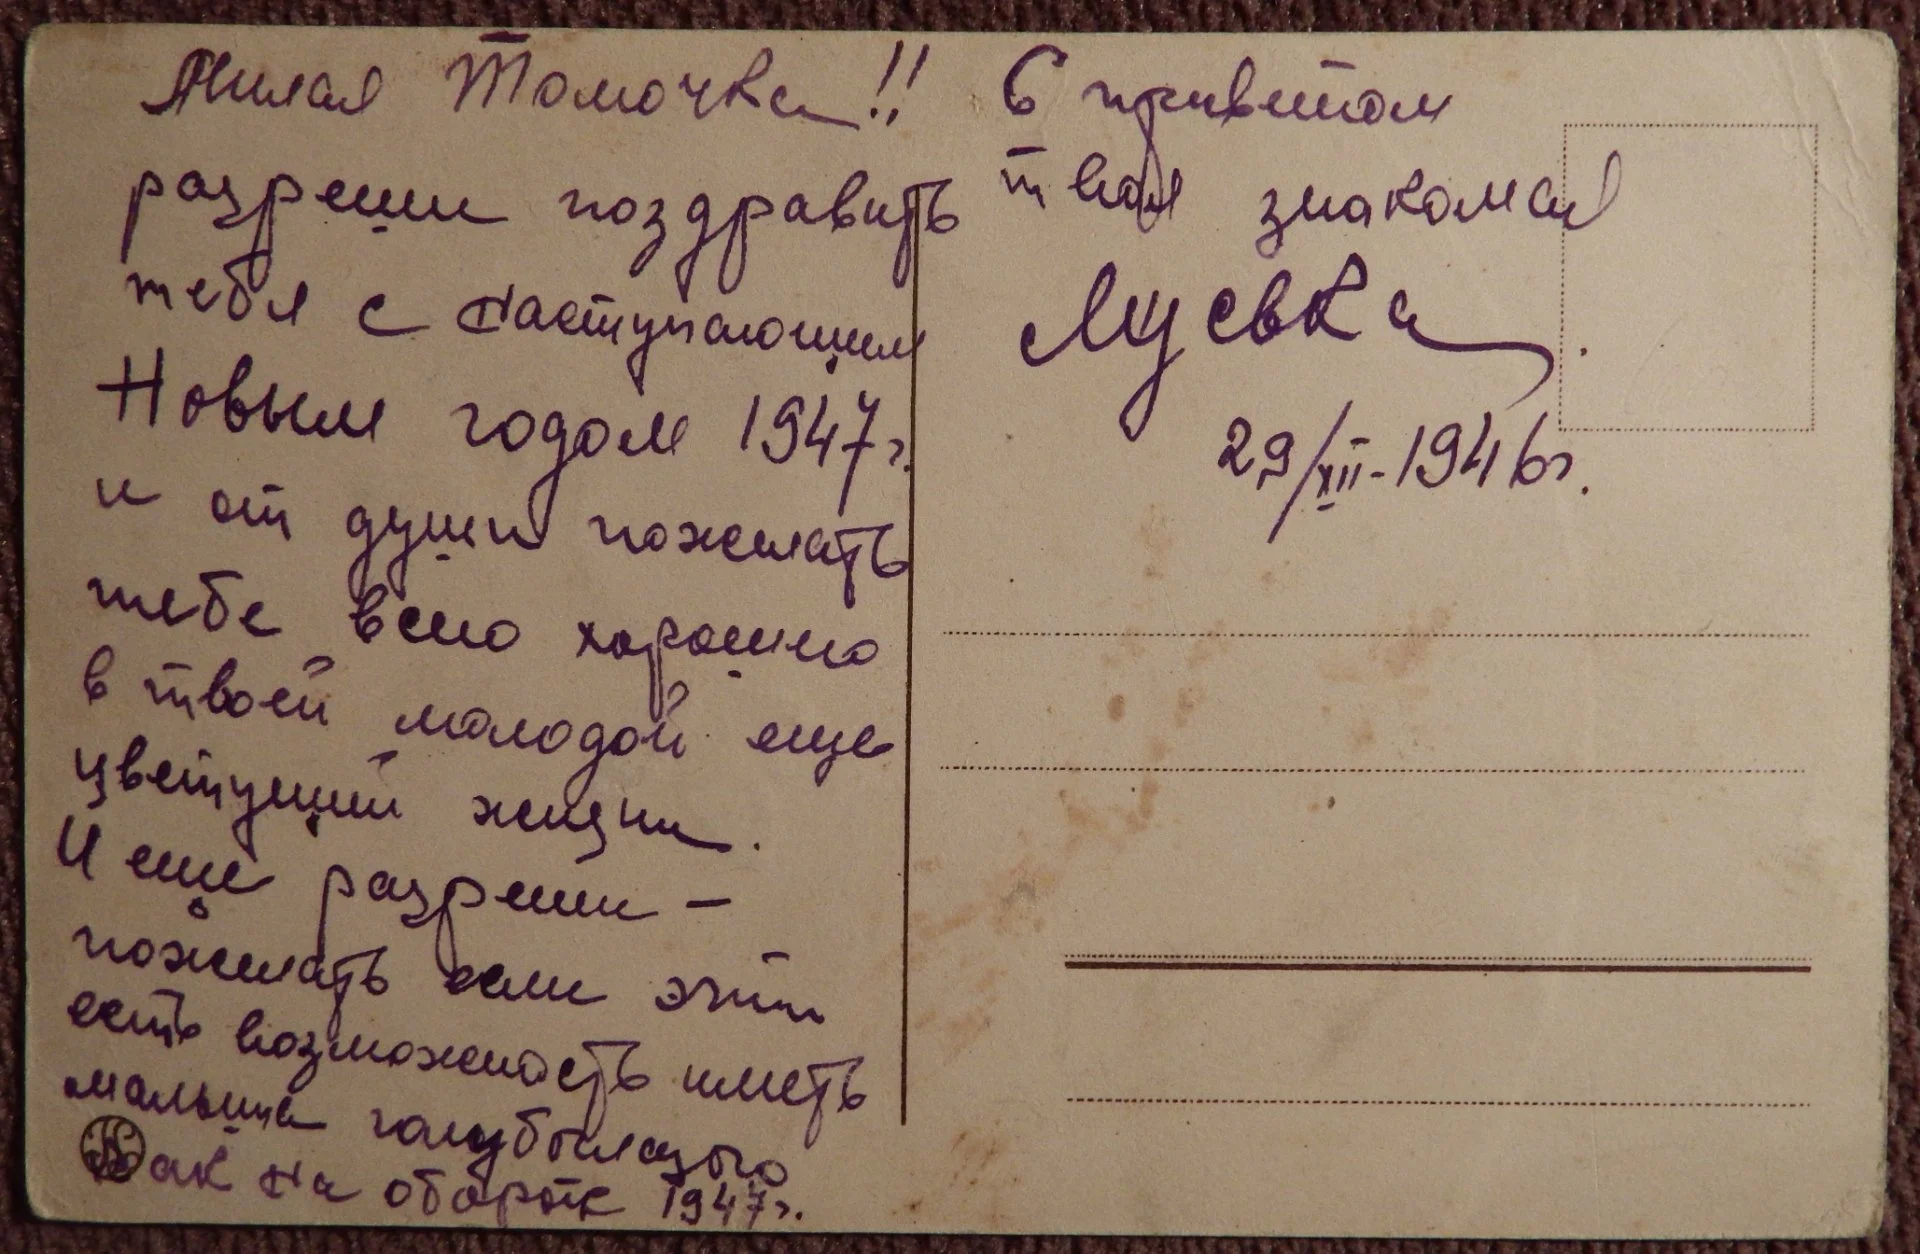 Милая Томочка!!
разреши поздравить
тебя с наступающим
Новым годом 1947г.
и от души пожелать
тебе всего хорошего
в твоей молодой еще
цветущий жизни.
И еще разреши –
пожелать если этти
есть возможность иметь
малыша голубоглазого
как на обороте 1947г.
С приветом
твоя знакомая
Люська
29/XII-1946г.